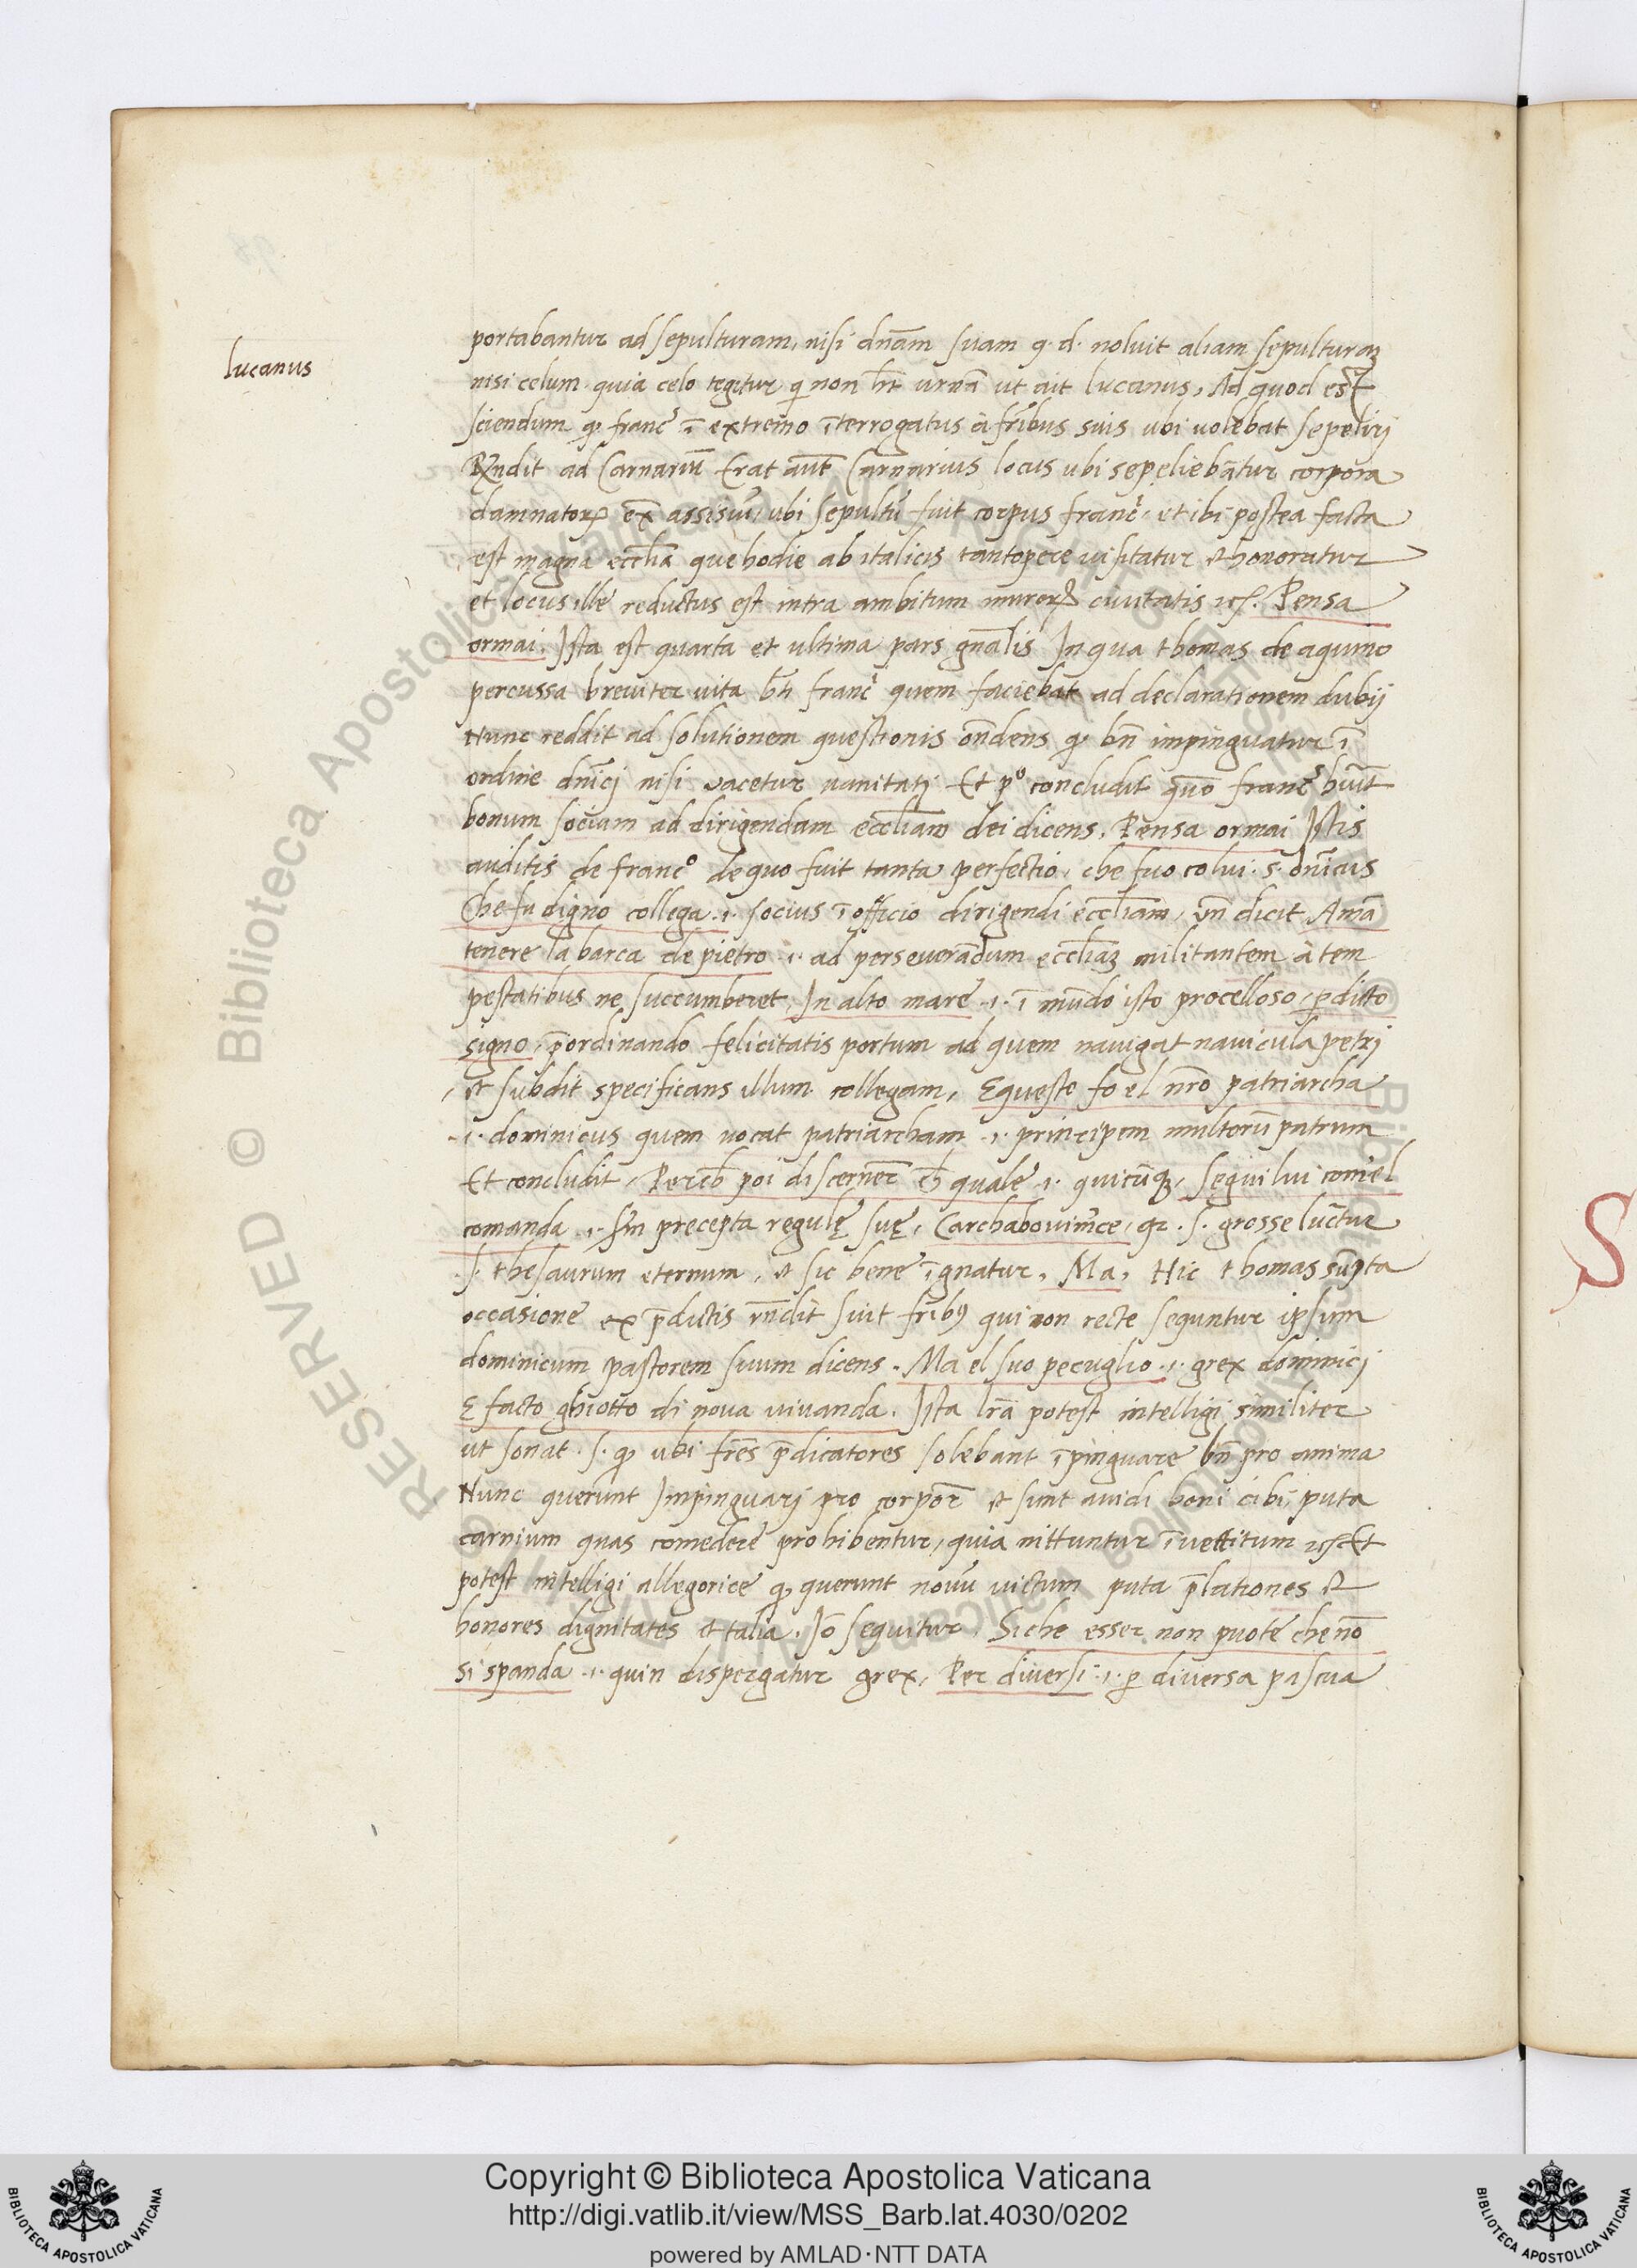 lucanus
portabantur ad sepulturam, nisi dnām suam q. d. noluit aliam sepulturaz
nisi celum quia celo tegitur q non ht urnā ut ait lucanus, Ad quod est
sciendum q franc̄ ī extremo īterrogatus à frībus suis ubi uolebat sepeliri
Rndit ad Carnariū Erat aūt Carnarius locus ubi sepeliebātur corpora
damnatorꝝ ex assisiū, ubi sepultū fuit corpus franc̄ et ibi postea facta
est magna ecclīa que hodie ab italicis tantopere uisitatur et honoratur
et locus ille reductus est intra ambitum murorꝝ ciuitatis Pensa
ormai. Ista est quarta et ultima pars gn̄alis In qua thomas de aquino
percussa breuiter uita bti franc̄ quem faciebat ad declarationem dubij
Nunc reddit ad solutionem questionis on̄dens q bn̄ impinguatur ī
ordine dn̄ici nisi uacetur uanitati Et p° concludit quō franc̄
bonum sociam ad dirigendam ecclīam dei dicens. Pensa ormai Istis
auditis de franc° de quo fuit tanta perfectio. che fuo colui. s.
Che fu digno collega .i. socius ī officio dirigendi ecclīam, vn̄ dicit Amā
tenere la barca de pietro .i. ad perseuerādum ecclīaz militantem à tem
pestatibus ne succumberet In alto mare .i. ī mūdo isto procelloso, p ditto
signo, p̄ordinando felicitatis portum ad quem nauigat nauicula petri
, et subdit specificans illum collegam, E questo fo el nrō patriarcha
.i. dominicus quem uocat patriarcham .i. principem multorū patrum
Et concludit, poi discerner quale .i. quicūq, segui lui com el
comanda .i. precepta regulę suę, q .s. grosse luctur
.s. thesaurum eternum, et sic bene īgnatur, Ma, Hic thomas sūpta
occasione ex p̄dictis suit frībꝰ qui non recte seguntur ipsum
dominicum pastorem suum dicens. Ma el suo pecuglio .i. grex dominici
E facto ghiotto di noua uiuanda. Ista lrā potest intelligi similiter
ut sonat .s. q ubi frēs p̄dicatores solebant īpinguare bn̄ pro anima
Nunc querunt Impinguari pro corpor̄ et sunt auidi boni cibi puta
carnium quas comedere prohibentur, quia nittuntur ī uettitum Et
potest intelligi allegorice q querunt nouū uictum puta p̄lationes et
honores dignitates et talia. Iō sequitur. Si che esser non puote che nō
si spanda .i. quin dispergatur grex, Per diuersi .i. p diuersa pascua
S
RESERVED © Biblioteca Apostolica Vaticana
BIBLIOTECA APOSTOLICA VATICANA
Copyright © Biblioteca Apostolica Vaticana
http://digi.vatlib.it/view/MSS_Barb.lat.4030/0202
powered by AMLAD·NTT DATA
BIBLIOTECA APOSTOLICA VATICANA